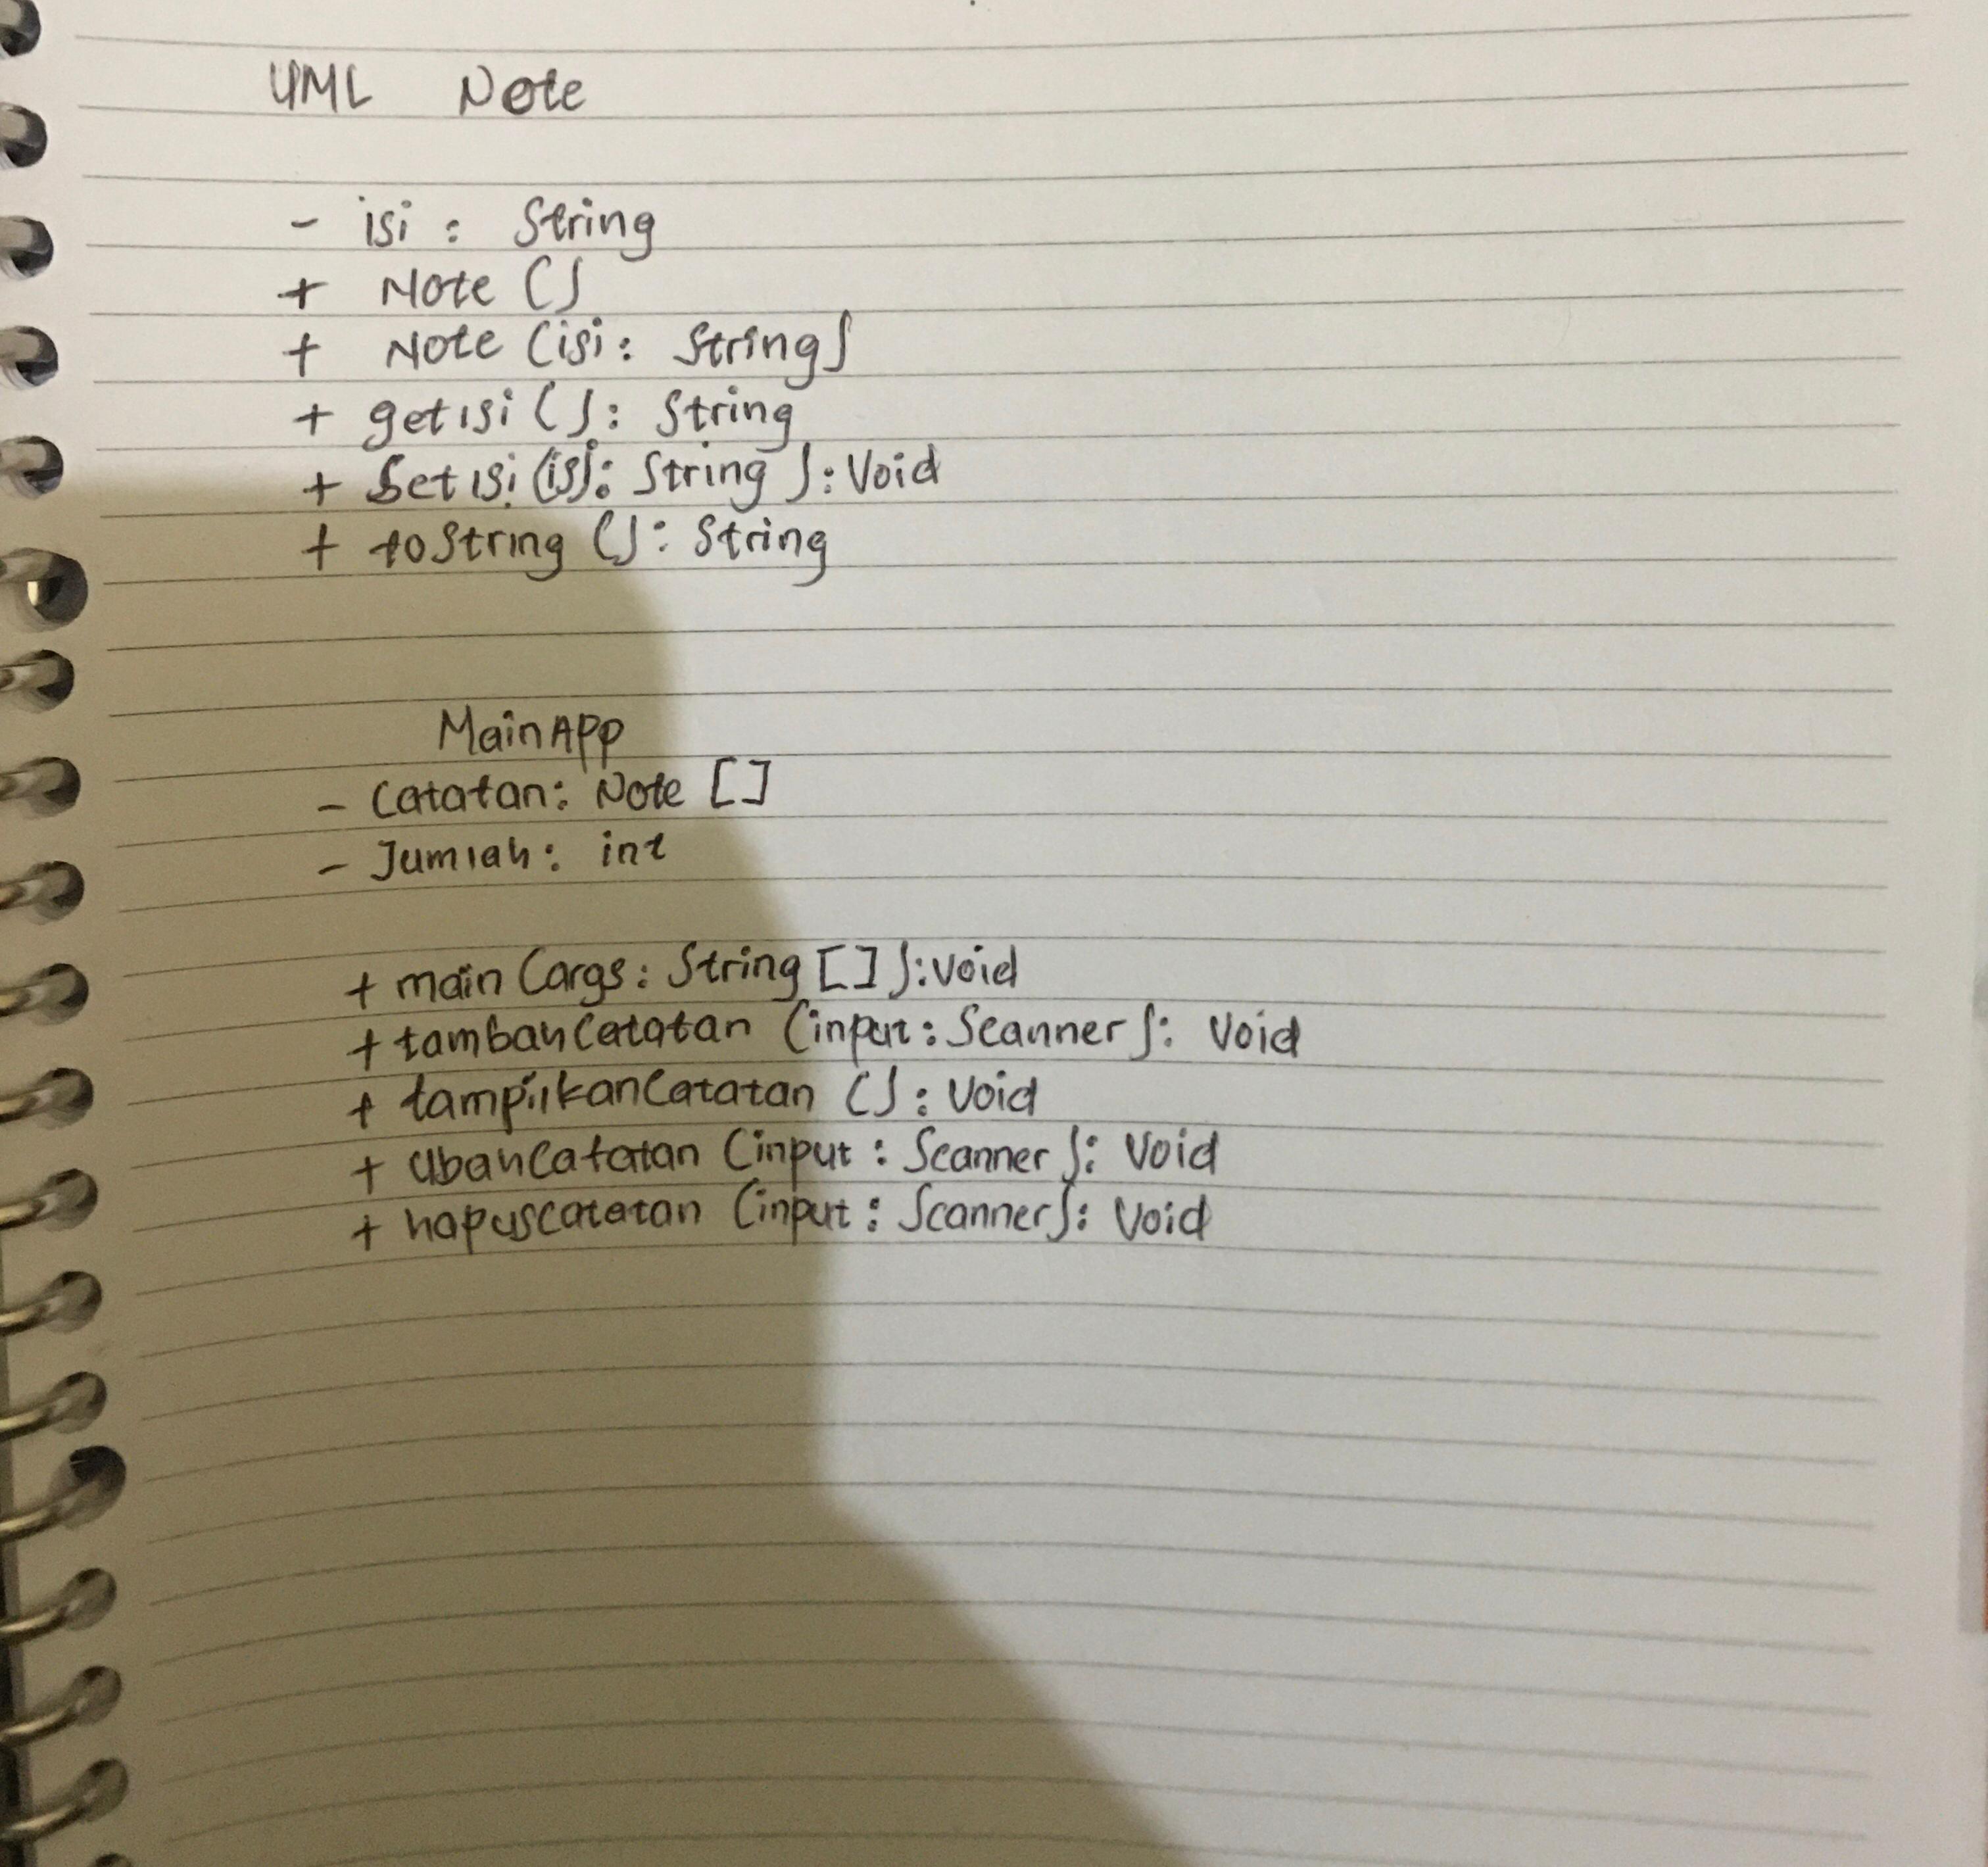 UML Note
- isi : String
+ Note ()
+ Note (isi : String)
+ getisi () : String
+ Setisi (isi : String ) : Void
+ toString () : String
MainApp
- Catatan : Note []
- Jumlah : int
+ main (args : String [] ) : Void
+ tambahCatatan (input : Scanner) : Void
+ tampilkanCatatan () : Void
+ UbahCatatan (input : Scanner) : Void
+ hapuscatatan (input : Scanner) : Void